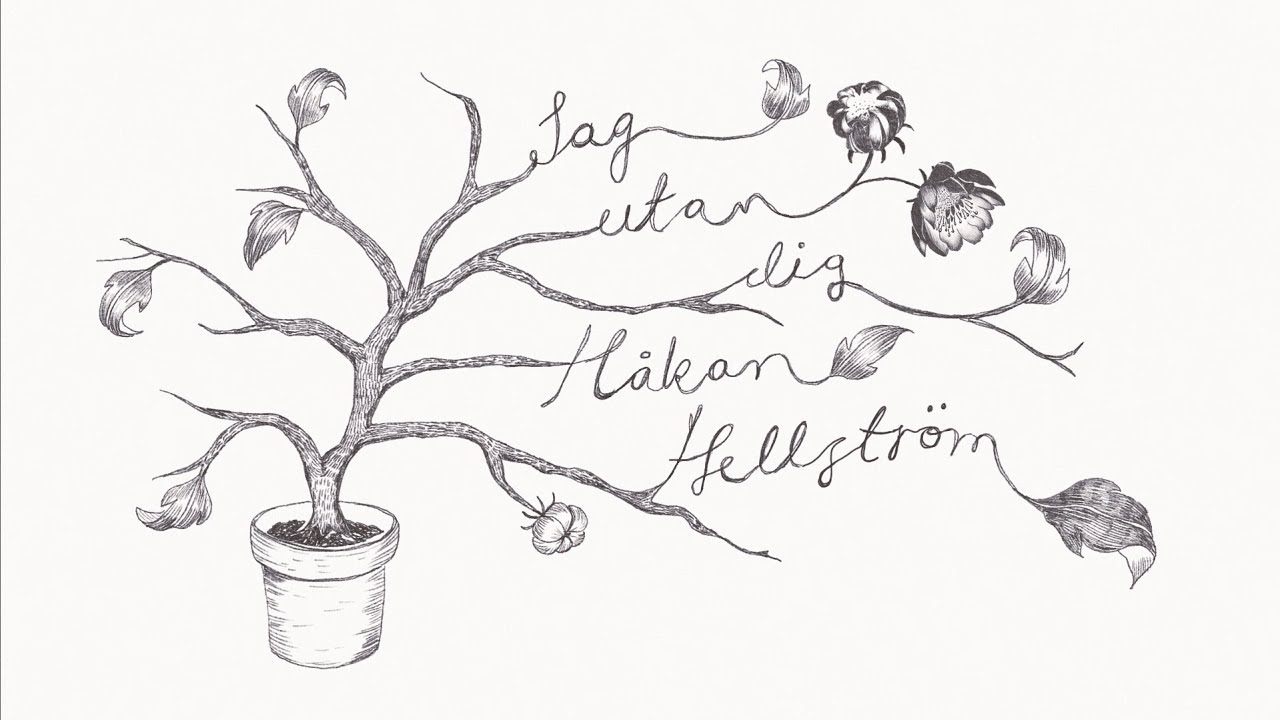 Jag
utan
dig
Håkan
Hellström